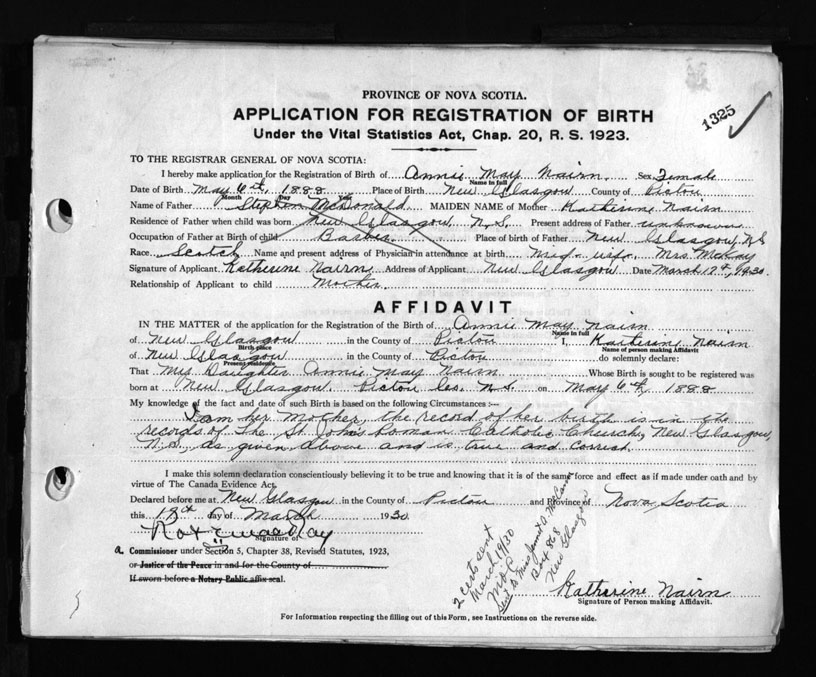 PROVINCE OF NOVA SCOTIA.
APPLICATION FOR REGISTRATION OF BIRTH
1325
Under the Vital Statistics Act, Chap. 20, R. S. 1923.
TO THE REGISTRAR GENERAL OF NOVA SCOTIA:
I hereby make application for the Registration of Birth of Annie May Nairn. Sex Female
Name in full
Date of Birth May 6th, 1888 Place of Birth New Glasgow County of Pictou
Month Day Year
Name of Father Stephen McDonald MAIDEN NAME of Mother Katherine Nairn
Residence of Father when child was born New Glasgow N.S. Present address of Father unknown
Occupation of Father at Birth of child Barber Place of Birth of Father New Glasgow, N.S.
Race Scotch Name and present address of Physician in attendance at birth mid-wife, Mrs. McKay
Signature of Applicant Katherine Nairn Address of Applicant New Glasgow Date March 12th, 1930.
Relationship of Applicant to child Mother.
AFFIDAVIT
IN THE MATTER of the application for the Registration of the Birth of Annie May Nairn
Name in full
of New Glasgow in the County of Pictou I, Katherine Nairn
Birth place Name of person making Affidavit
of New Glasgow in the County of Pictou do solemnly declare:
Present residence
That My Daughter Annie May Nairn Whose Birth is sought to be registered was
born at New Glasgow Pictou Co. N.S. on May 6th, 1888
My knowledge of the fact and date of such Birth is based on the following Circumstances :—
I am her Mother, the record of her birth is in the
records of The St John's Roman Catholic Church, New Glasgow,
N.S. as given above and is true and correct.
I make this solemn declaration conscientiously believing it to be true and knowing that it is of the same force and effect as if made under oath and by
virtue of The Canada Evidence Act.
Declared before me at New Glasgow in the County of Pictou and Province of Nova Scotia
this 12th day of March 1930
Signature of
a Commissioner under Section 5, Chapter 38, Revised Statutes, 1923,
or Justice of the Peace in and for the County of
If sworn before a Notary Public affix seal.
2 certs sent
March 19/30
Box 868
New Glasgow
Katherine Nairn
Signature of Person making Affidavit.
For Information respecting the filling out of this Form, see Instructions on the reverse side.